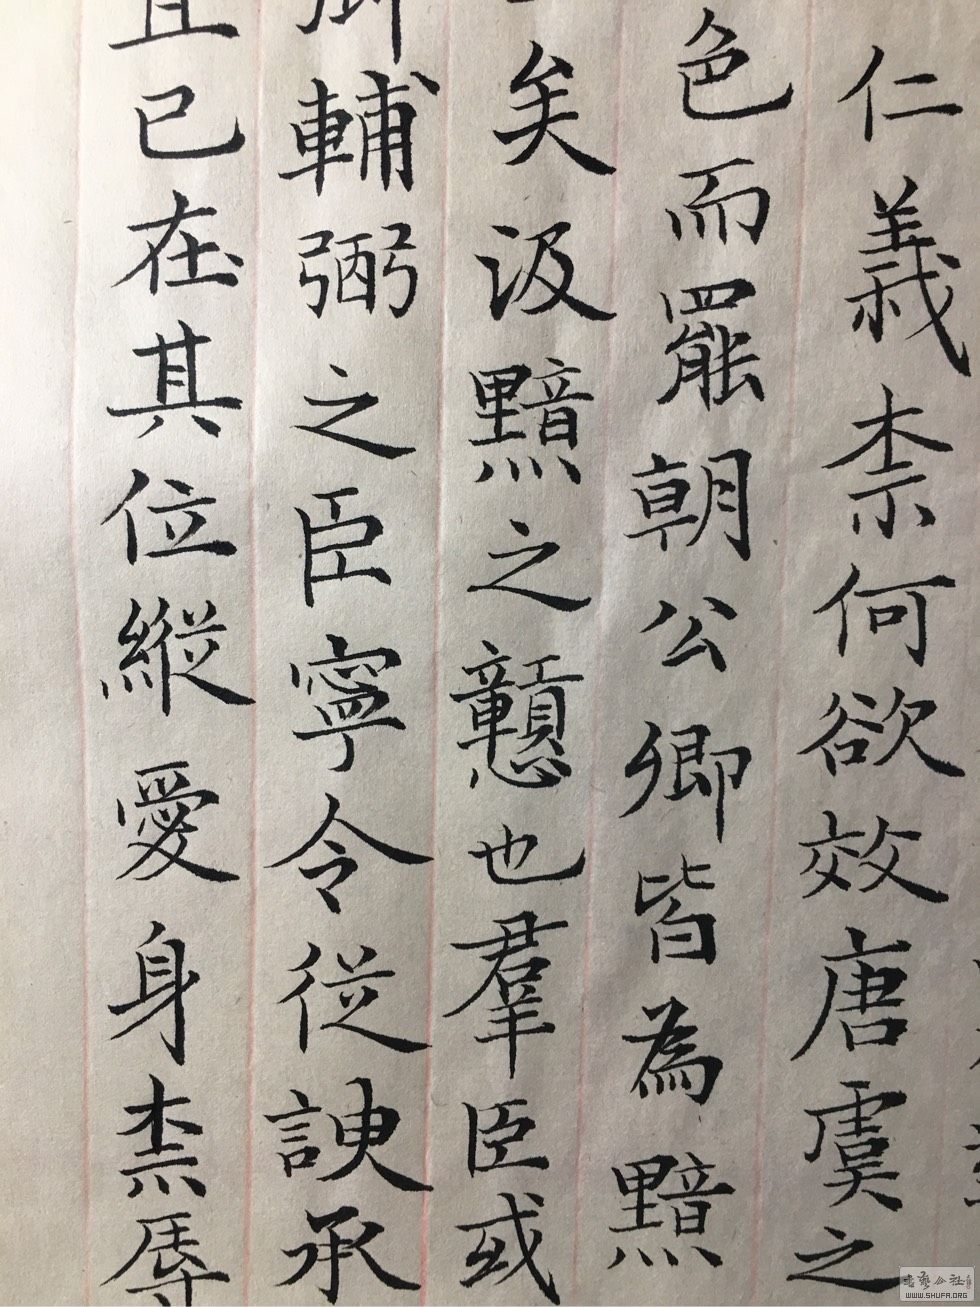 仁義柰何欲效唐虞之
色而罷朝公卿皆為黯
矣汲黯之戇也羣臣或
輔弼之臣寧令從諛承
且已在其位縱愛身柰辱
書藝公社
WWW.SHUFA.ORG